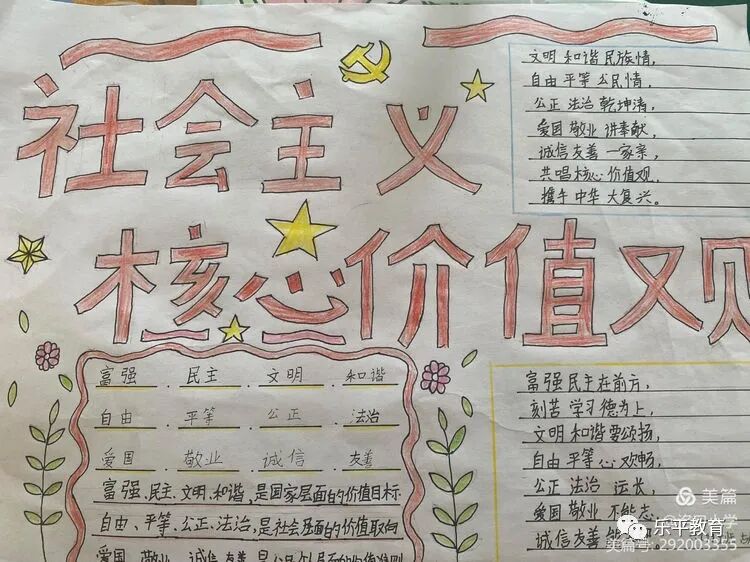 社会主义
核心价值观
文明 和谐 民族情，
自由 平等 公民情，
公正 法治 乾坤清，
爱国 敬业 讲奉献，
诚信 友善 一家亲，
共唱 核心 价值观，
携手 中华 大复兴。
富强 、 民主 、 文明 、 和谐
自由 、 平等 、 公正 、 法治
爱国 、 敬业 、 诚信 、 友善
富强、民主、文明、和谐，是国家层面的价值目标
自由、平等、公正、法治，是社会层面的价值取向
爱国、敬业、诚信、友善，是公民个人层面的价值准则
富强 民主 在前方，
刻苦 学习 德为上，
文明 和谐 要颂扬，
自由 平等 心 欢畅，
公正 法治 运长，
爱国 敬业 不能忘，
诚信 友善
美篇
乐平教育
美篇号:292003355